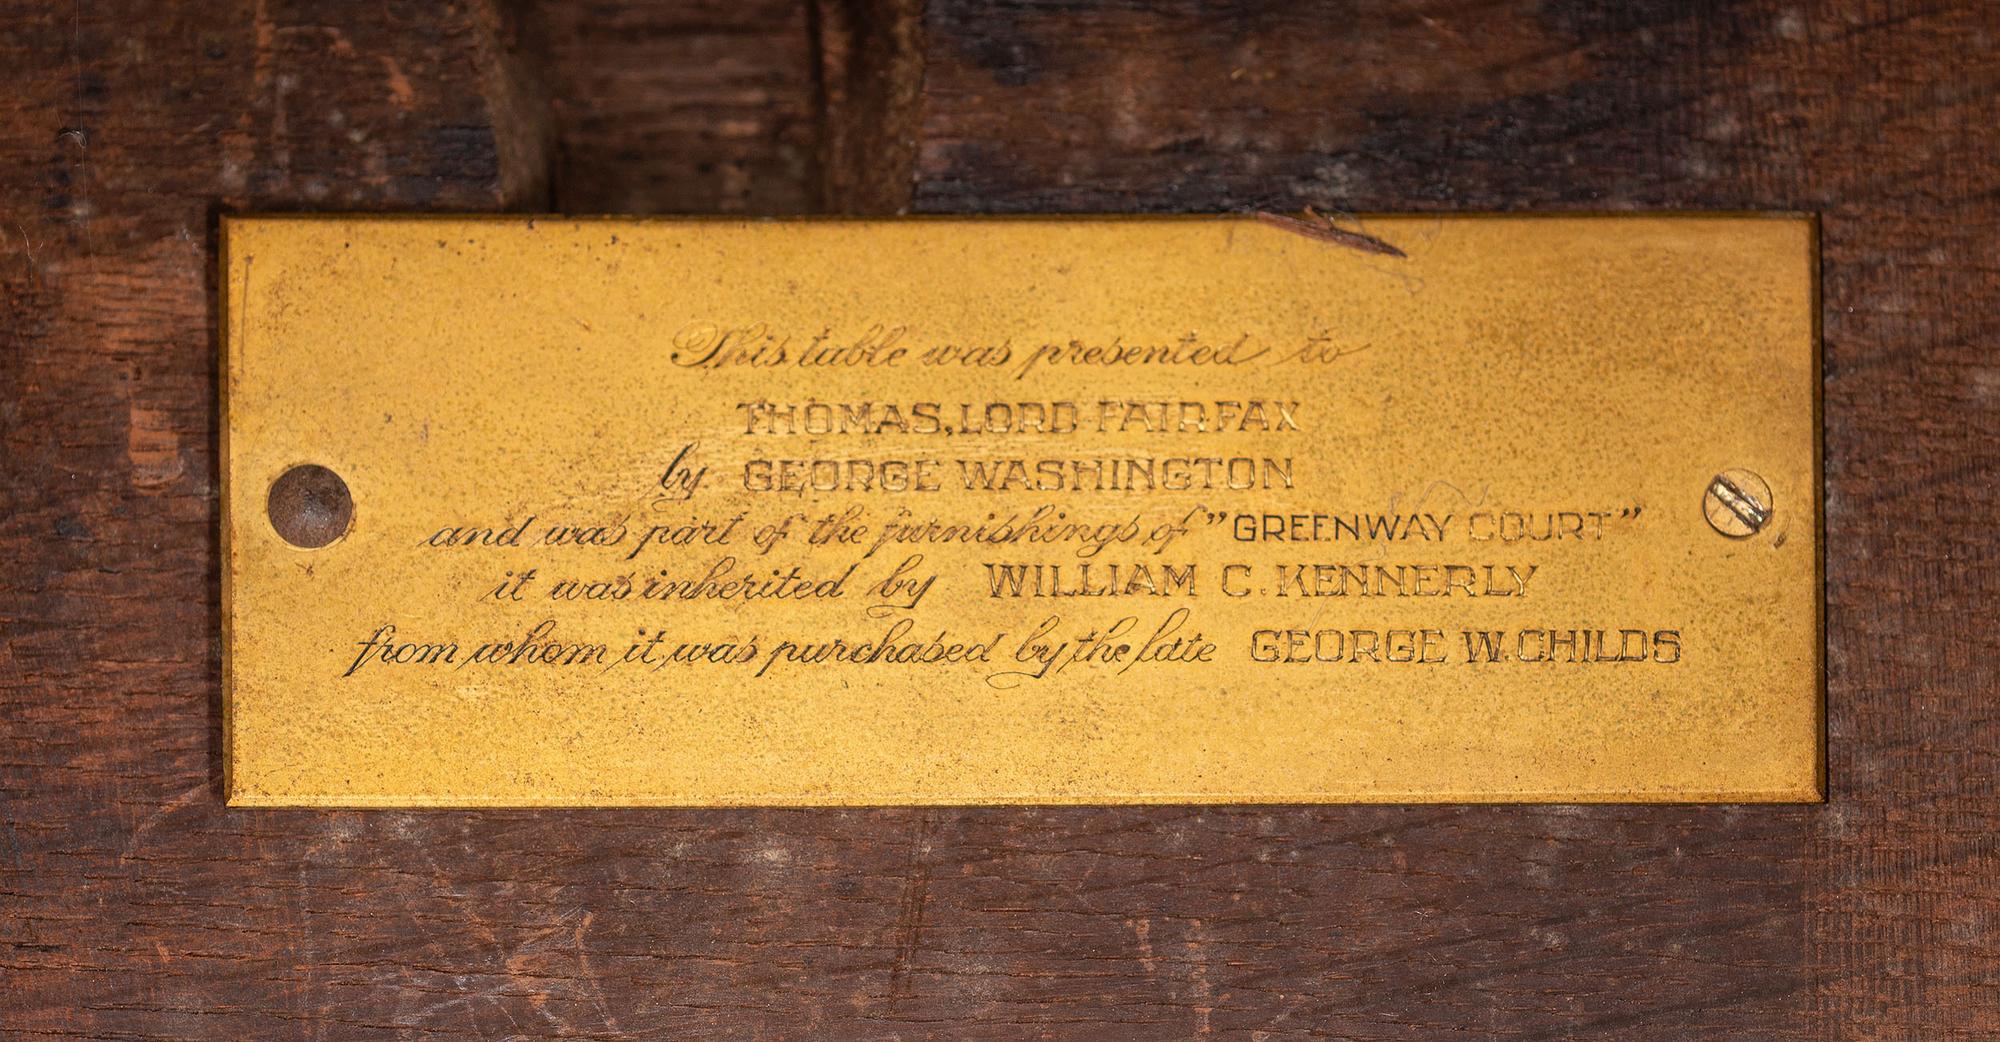 This table was presented to
THOMAS, LORD FAIRFAX
by GEORGE WASHINGTON
and was part of the furnishings of "GREENWAY COURT"
it was inherited by WILLIAM C. KENNERLY
from whom it was purchased by the late GEORGE W. CHILDS